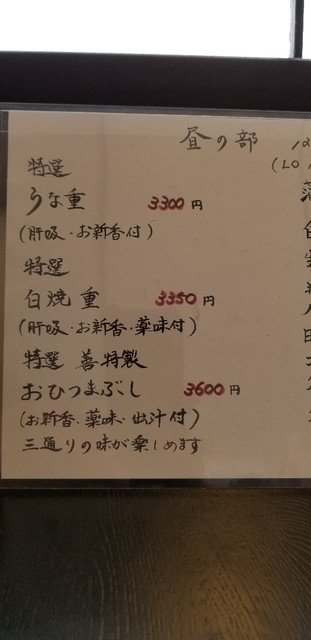 昼の部
(LO
特選
うな重 3300円
(肝吸・お新香付)
特選
白焼重 3350円
(肝吸・お新香・薬味付)
特選 善特製
おひつまぶし 3600円
(お新香・薬味・出汁付)
三通りの味が楽しめます